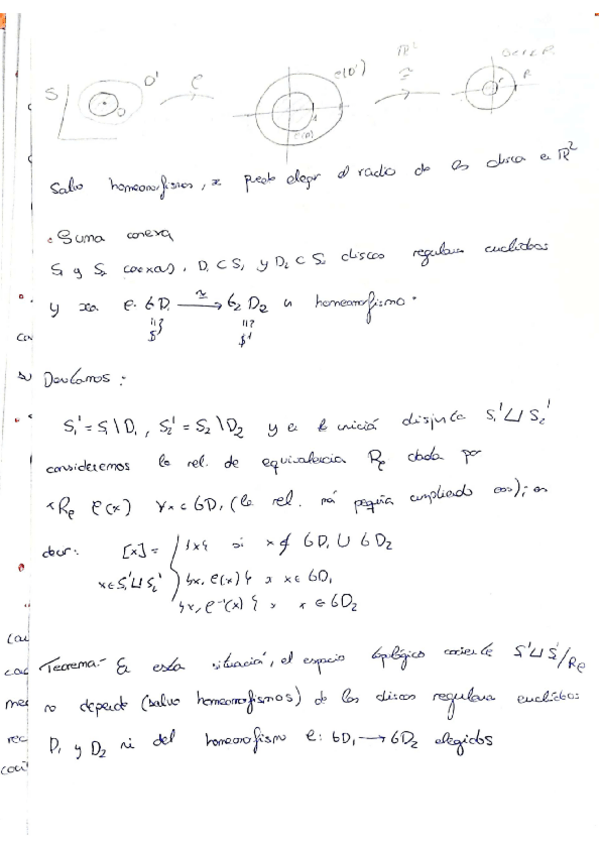 S D' D φ φ(D') φ(D) 1 ℝ² ≅ 0<r<R r R
Salvo homeomorfismos, se puede elegir el radio de los discos en ℝ²
• Suma conexa
S₁ y S₂ conexas, D₁ ⊂ S₁ y D₂ ⊂ S₂ discos regulares euclídeos
y sea φ: ∂D₁ ≅→ ∂D₂ un homeomorfismo.
𝕊¹ 𝕊¹
Denotamos:
S₁' = S₁\D₁, S₂' = S₂\D₂ y en la unión disjunta S₁'⊔S₂'
consideremos la rel. de equivalencia Rφ dada por
xRφ φ(x) ∀x∈∂D₁ (la rel. más pequeña cumpliendo eso); es
decir: [x] = { {x} si x∉∂D₁∪∂D₂
x∈S₁'⊔S₂' {x, φ(x)} si x∈∂D₁
{x, φ⁻¹(x)} si x∈∂D₂
Teorema.- En esta situación, el espacio topológico cociente S'⊔S'/Rφ
no depende (salvo homeomorfismos) de los discos regulares euclídeos
D₁ y D₂ ni del homeomorfismo φ: ∂D₁→∂D₂ elegidos